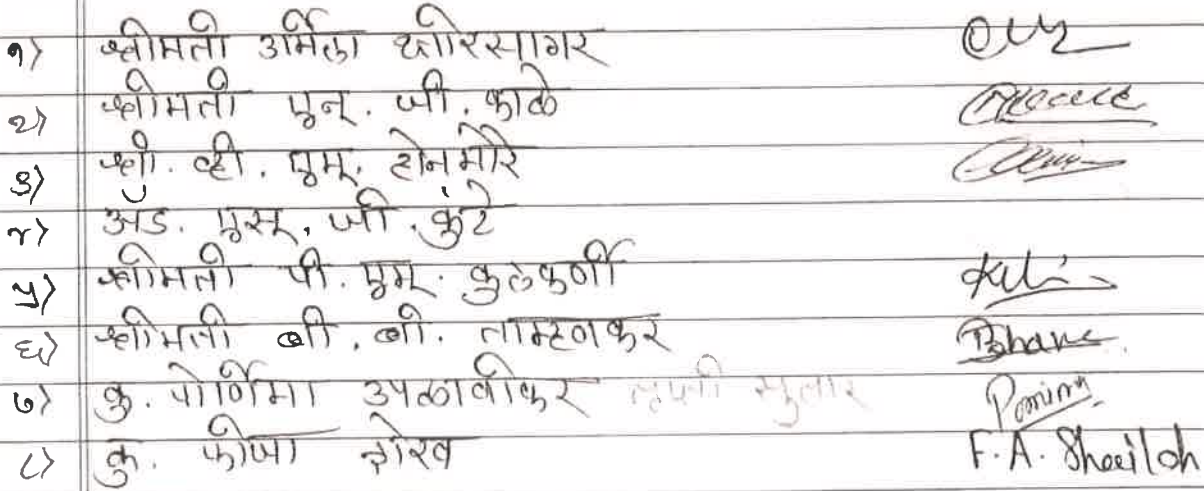 १) श्रीमती उर्मिला क्षीरसागर
२) श्रीमती एन्. जी. काळे
३) श्री. व्ही. एम्. होनमोरे
४) ॲड. एस्. जी. कुंटे
५) श्रीमती पी. एम्. कुलकर्णी
६) श्रीमती बी. बी. ताम्हणकर Bhane
७) कु. पोर्णिमा उपळावीकर
८) कु. फीजा शेख F. A. Shaikh